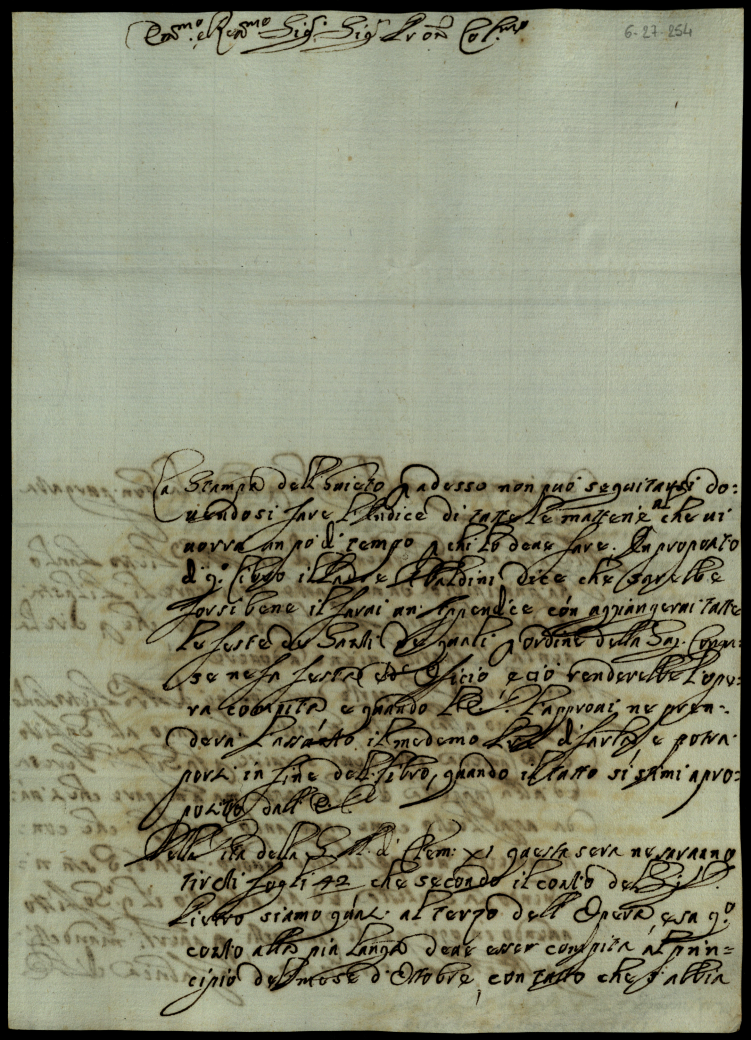 Em.mo e Rev.mo Sig.r Sig.r Pron Col.mo
6-27-254
La Stampa dell' Suieto p adesso non può seguitarsi do:
uendosi fare l'Indice di tutte le matterie che ui
uorrà un pò di tempo p chi lo deue fare. In proposito
di q.o Libro il Padre Baldini dice che sarebbe
forsi bene il farui un' Apendice con aggiungerui tutte
le feste de Santi de quali p ordine della Sag. Congr.
se ne fa festa ed Oficio e ciò renderebbe l'ope:
ra compita e quando l'E.V. l'approui ne pren:
derà l'assunto il medemo di farla e potrà
porsi in fine del libro, quando il tutto si stimi apro:
posito dall' E.V.
Della Vita della S.M. di Clem: XI questa sera ne saranno
tirati fogli 42 che secondo il conto del Sig.r D.
Pietro siamo quasi al terzo dell' Opera e sa q.o
conto alla più lunga deue esser compita al prin:
cipio del mese d'Ottobre, con tutto che s'abbia